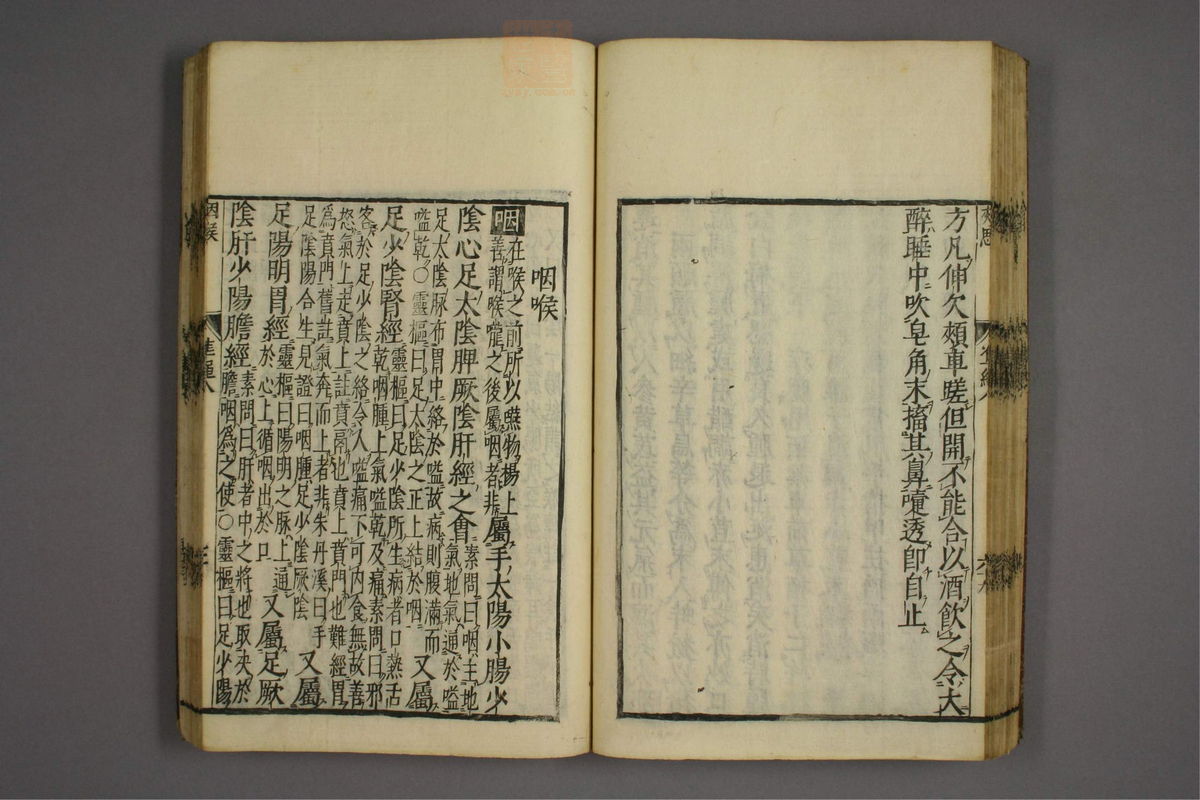 方凡伸欠頰車蹉但開不能合以酒飲之令大
醉睡中吹皂角末搐其鼻嚏透即自止
咽喉
咽
在喉之前所以嚥物楊上
善謂喉嚨之後屬咽者非
屬手太陽小腸少
陰心足太陰脾厥陰肝經之會
素問曰咽主地
氣地氣通於嗌
足太陰脉布胃中絡於嗌故病則腹滿而
嗌乾○靈樞曰足太陰之正上結於咽
又屬
足少陰腎經
靈樞曰足少陰所生病者口熱舌
乾咽腫上氣嗌乾及痛素問曰邪
客於足少陰之絡令人嗌痛不可内食無故善
怒氣上走賁上註賁鬲也賁上賁門也難經胃
為賁門舊註氣奔而上者非朱丹溪曰手
足陰陽合生見證曰咽腫足少陰厥陰
又屬
足陽明胃經
靈樞曰陽明之脉上通
於心上循咽出於口
又屬足厥
陰肝少陽膽經
素問曰肝者中之將也取决於
膽咽為之使○靈樞曰足少陽
咽喉